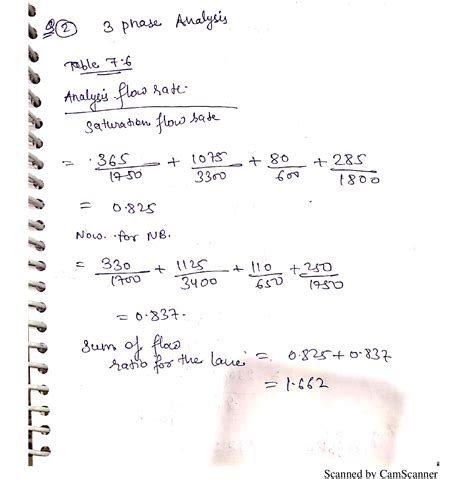 Q ② 3 phase Analysis
Table 7.6
Analysis flow rate.
Saturation flow rate
= 365/1750 + 1075/3300 + 80/600 + 285/1800
= 0.825
Now. for NB.
= 330/1700 + 1125/3400 + 110/650 + 250/1750
= 0.837.
Sum of flow
ratio for the lane = 0.825 + 0.837
= 1.662
Scanned by CamScanner